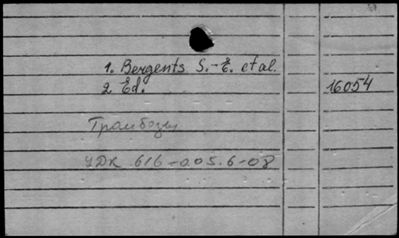 1. Bergents S.-E. et al.
2 Ed. 16054
Тромбозы
УДК 616-005.6-08